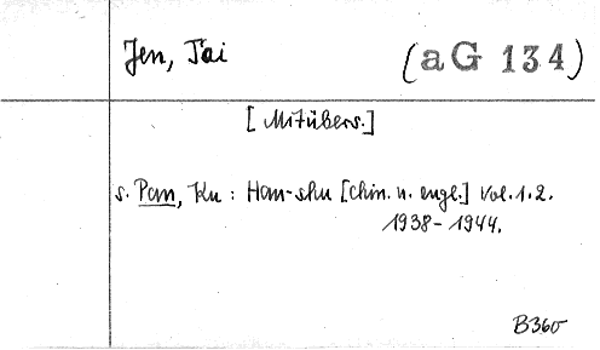 Jen, Tai (aG 134)
[Mitübers.]
s. Pan, Ku: Han-shu [chin. u. engl.] Vol. 1. 2.
1938-1944.
B360